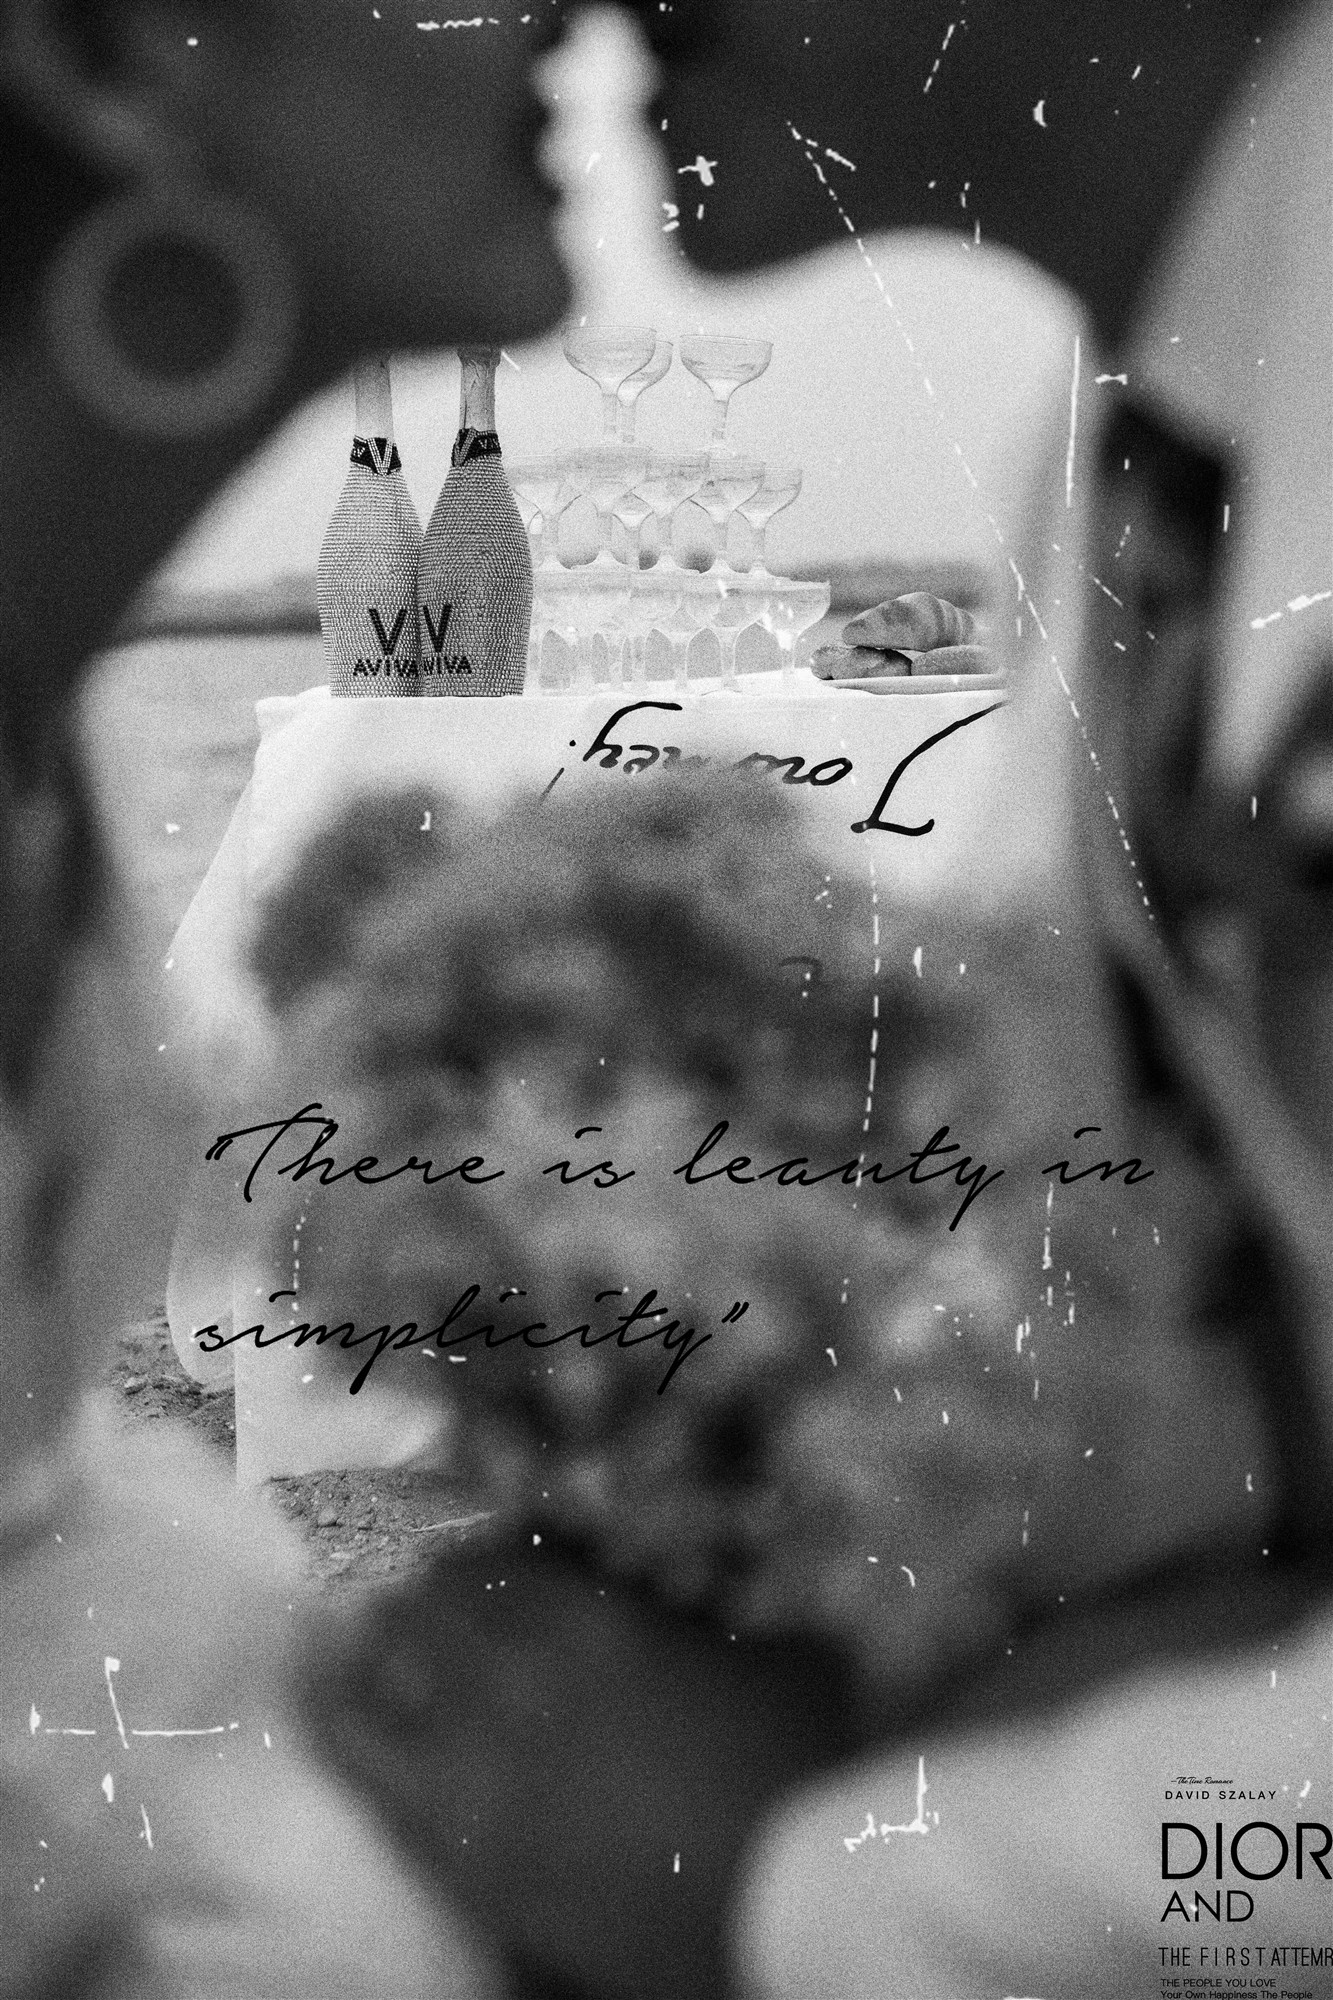 V V
AVIVA VIVA
"There is leauty in
simplicity"
—The Time Romance
DAVID SZALAY
DIOR
AND
THE FIRST ATTEMP
THE PEOPLE YOU LOVE
Your Own Happiness The People